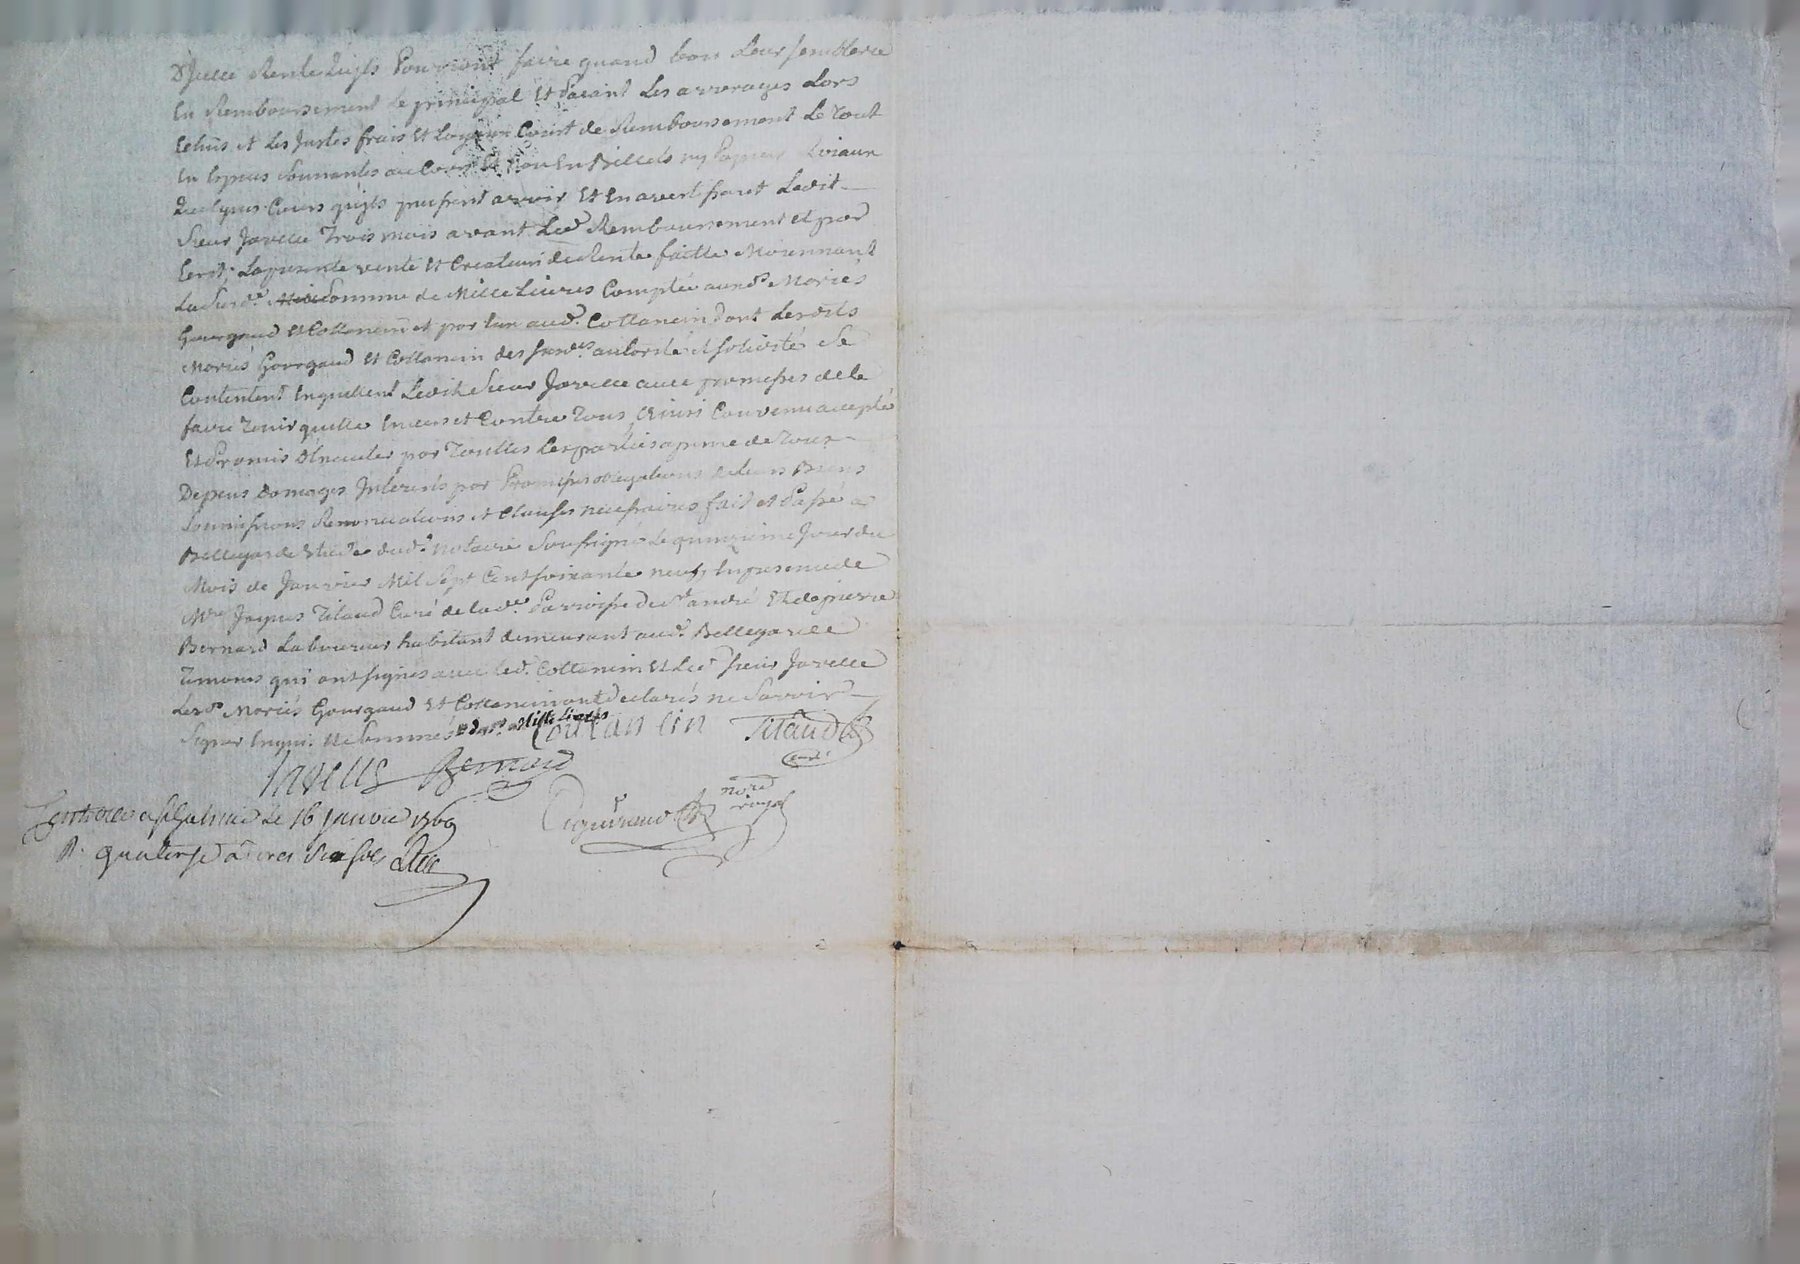 D'Icelle Rente quils Pourront faire quand bon Leur semblera
En Remboursement le principal Et Païant Les arrerages Lors
Echûs et Les Justes frais Et Loyaux Coust de Remboursement Le Tout
En Especes Sonnantes au Cours Et non En Billets ny Papiers
quelques Cours quils puissent avoir Et En avertissant Ledit
Sieur Javelle Trois mois avant Led. Remboursement et par
Ecrit; La presente vente Et Creation de Rente faitte Moiennant
La Susd.e Somme de Mille Livres Comptée auxd.s Mariés
Gourgaud Et Cottancin et par eux aud. Cottancin Dont Lesdits
Mariés Gourgaud Et Cottancin des susd.es autorité et solidité Se
Contentent En quittent Ledit Sieur Javelle avec promesses de le
faire Tenir quitte Envers et Contre Tous, Ainsi Convenu accepté
Et Promis D'Executer par Touttes Les parties a peine de Tous
Depens Domages Interests par Promesses obligations de Leurs Biens
Soumissions Renonciations et Clauses necessaires fait et Passé a
Bellegarde Etude dud. notaire Soussigné Le quinzieme Jour du
Mois de Janvier Mil Sept Cent soixante neuf, En presence de
M.re Jaques Titaud Curé de lad.e Parroisse de S.t andré Et de pierre
Bernard Laboureur habitant demeurant aud. Bellegarde
Temoins qui ont signés avec led. Cottancin Et Led. sieur Javelle
Lesd. Mariés Gourgaud Et Cottancin ont declarés ne Savoir
Signer Enquis Et Sommés
Coutancin Titaud
curé
Javelle Bernard
no.re
royal
Le 16 janvier 1769
R. quatorse